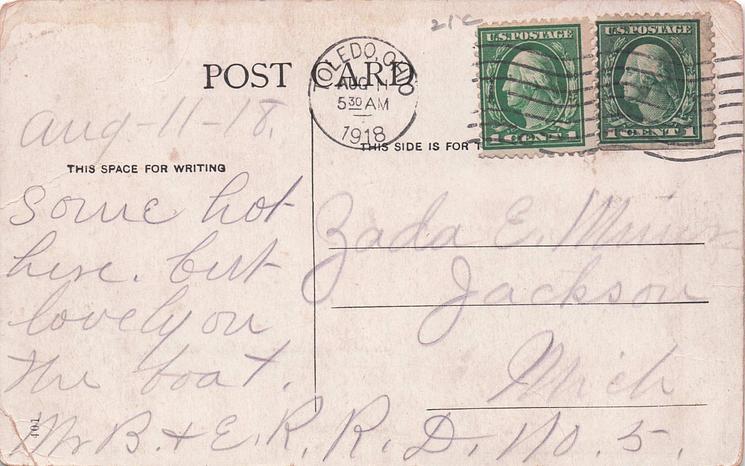 21c
U.S. POSTAGE
1 CENT 1
U.S. POSTAGE
1 CENT 1
TOLEDO, OHIO
AUG 11
5 30 AM
1918
POST CARD
Aug-11-18.
THIS SPACE FOR WRITING
THIS SIDE IS FOR T
Some hot
here. but
lovely on
the boat.
Mr B. & E.
Zada E.
Jackson
Mich
R. R. D. No. 5.
101